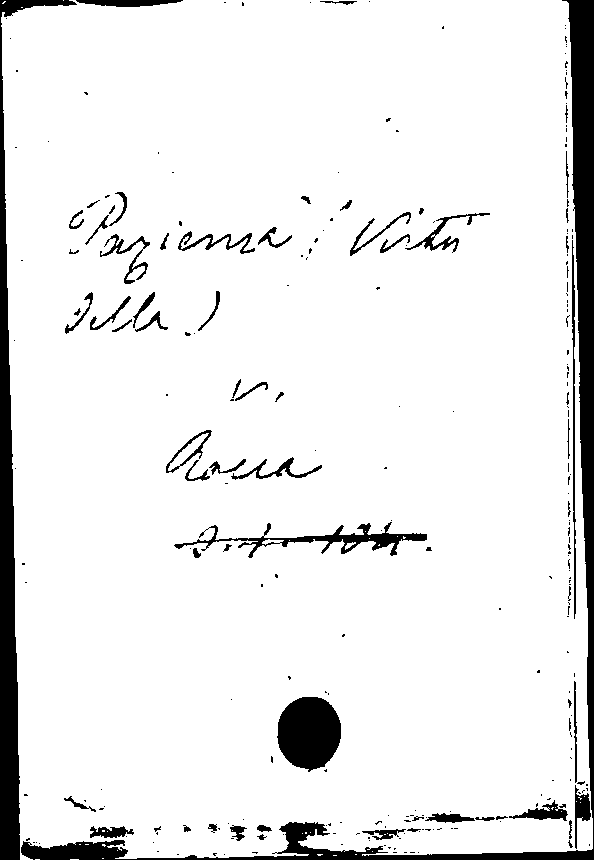 Pazienza (Virtù
della)
v.
Rocca